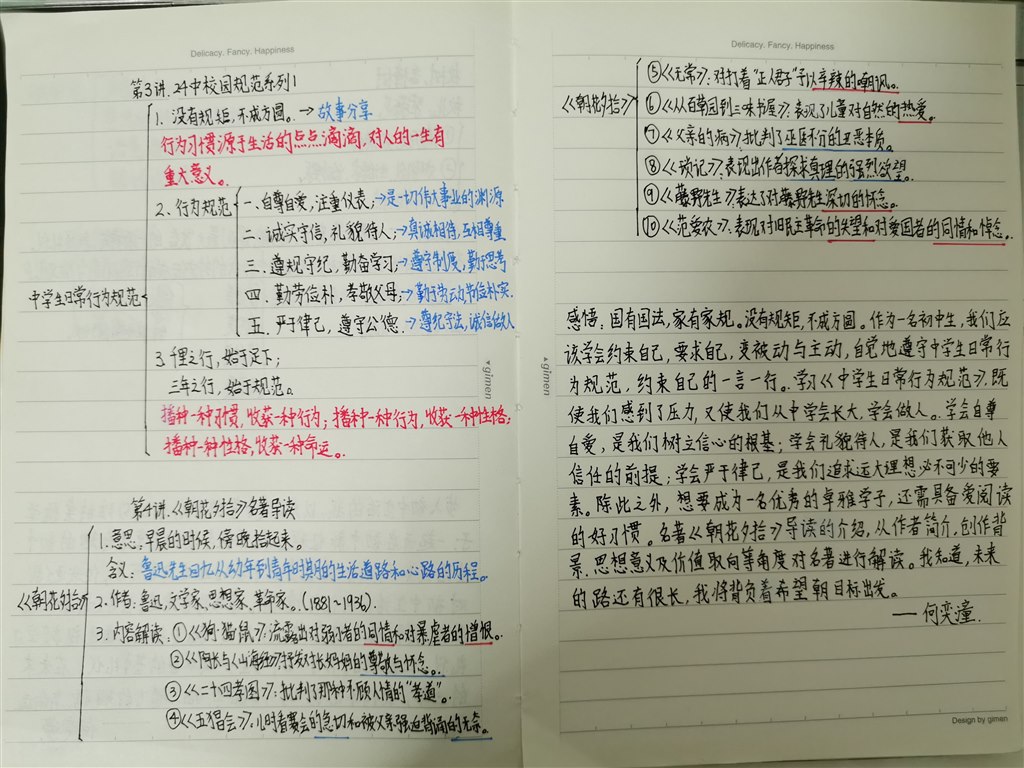 Delicacy. Fancy. Happiness
第3讲. 24中校园规范系列1
1. 没有规矩,不成方圆。→故事分享
行为习惯源于生活的点点滴滴,对人的一生有
重大意义。
2. 行为规范
一.自尊自爱,注重仪表;→是一切伟大事业的渊源
二.诚实守信,礼貌待人;→真诚相待,互相尊重
三.遵规守纪,勤奋学习;→遵守制度,勤于思考
四.勤劳俭朴,孝敬父母;→勤于劳动,节俭朴实.
五.严于律己,遵守公德.→遵纪守法,诚信做人
中学生日常行为规范
3. 千里之行,始于足下;
三年之行,始于规范。
播种一种习惯,收获一种行为;播种一种行为,收获一种性格;
播种一种性格,收获一种命运。
第4讲.《朝花夕拾》名著导读
1. 意思:早晨的时候,傍晚拾起来。
含义:鲁迅先生回忆从幼年到青年时期的生活道路和心路的历程。
《朝花夕拾》
2. 作者:鲁迅,文学家、思想家、革命家。(1881~1936).
3. 内容解读:①《狗·猫·鼠》:流露出对弱小者的同情和对暴虐者的憎恨。
②《阿长与《山海经》》:抒发对长妈妈的尊敬与怀念。
③《二十四孝图》:批判了那种不顾人情的“孝道”。
④《五猖会》:儿时看赛会的急切和被父亲强迫背诵的无奈。
gimen
Delicacy. Fancy. Happiness
《朝花夕拾》
⑤《无常》:对打着“正人君子”予以辛辣的嘲讽。
⑥《从百草园到三味书屋》:表现了儿童对自然的热爱。
⑦《父亲的病》:批判了巫医不分的丑恶本质。
⑧《琐记》:表现出作者探求真理的强烈欲望。
⑨《藤野先生》:表达了对藤野先生深切的怀念。
⑩《范爱农》:表现对旧民主革命的失望和对爱国者的同情和悼念。
感悟:国有国法,家有家规。没有规矩,不成方圆。作为一名初中生,我们应
该学会约束自己,要求自己,变被动与主动,自觉地遵守中学生日常行
为规范,约束自己的一言一行。学习《中学生日常行为规范》,既
使我们感到了压力,又使我们从中学会长大,学会做人。学会自尊
自爱,是我们树立信心的根基;学会礼貌待人,是我们获取他人
信任的前提;学会严于律己,是我们追求远大理想必不可少的要
素。除此之外,想要成为一名优秀的卓雅学子,还需具备爱阅读
的好习惯。名著《朝花夕拾》导读的介绍,从作者简介,创作背
景、思想意义及价值取向等角度对名著进行解读。我知道,未来
的路还有很长,我将背负着希望朝目标出发。
——何奕潼.
gimen
Design by gimen